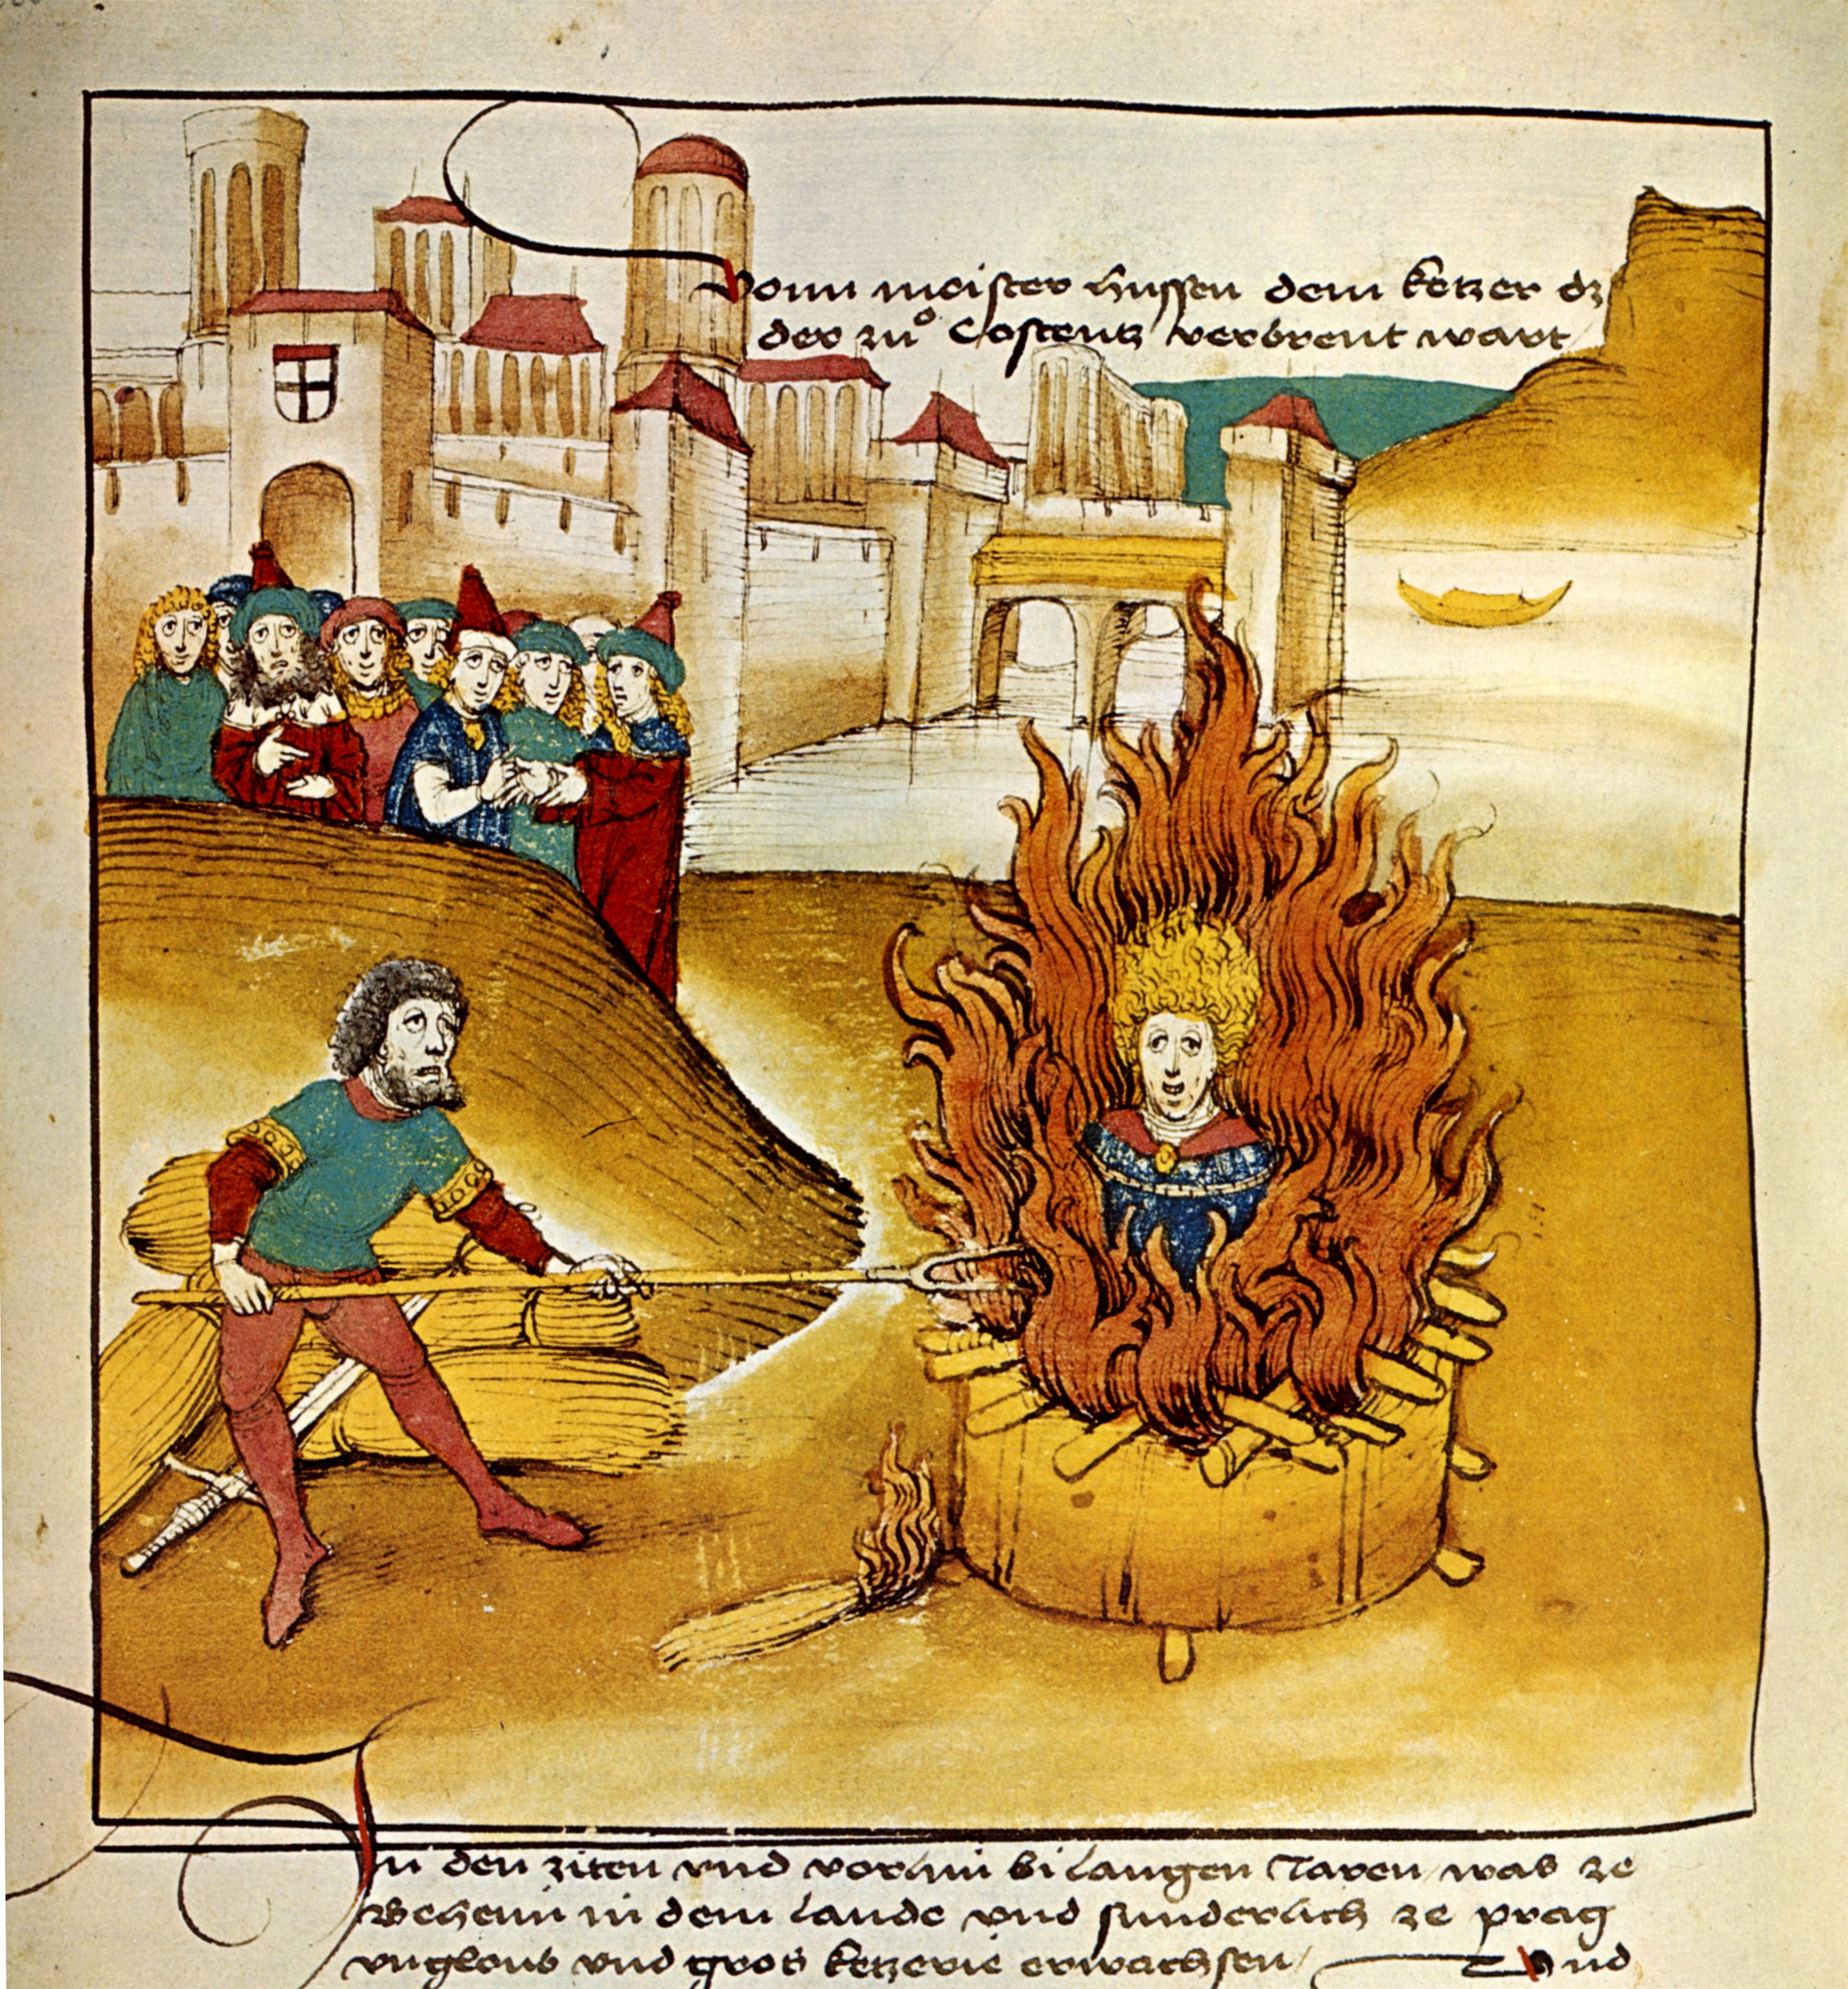 Vonn meister hussen dem ketzer dz
der zů Costentz verbrent wart
In den ziten vnd vorhin bi langen Jaren was ze
Behemm in dem lande vnd sunderlich ze prag
vngloub vnd gros ketzerie erwachsen Vnd